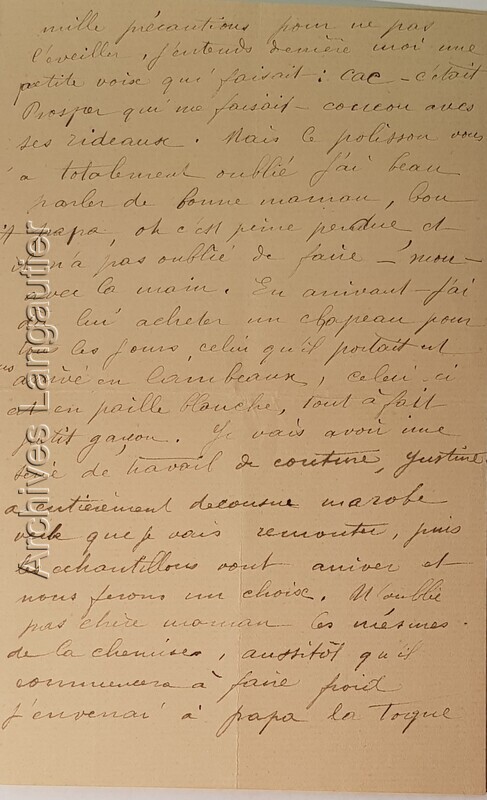 mille précautions pour ne pas
l'éveiller, j'entends derrière moi une
petite voix qui faisait : cac - c'était
Prosper qui me faisait coucou avec
ses rideaux. Mais le polisson vous
a totalement oublié j'ai beau
parler de bonne maman, bon
papa, oh c'est peine perdue et
n'a pas oublié de faire
avec la main. En arrivant j'ai
dû lui acheter un chapeau pour
les jours, celui qu'il portait est
arrivé en lambeaux, celui-ci
est en paille blanche, tout à fait
petit garçon. Je vais avoir une
de travail de couture, Justine
a entièrement décousue ma robe
que je vais remonter, puis
les échantillons vont arriver et
nous ferons un choix. N'oublie
pas chère maman les mesures
de la chemise, aussitôt qu'il
commencera à faire froid
j'enverrai à papa la Toque
Archives Langautier